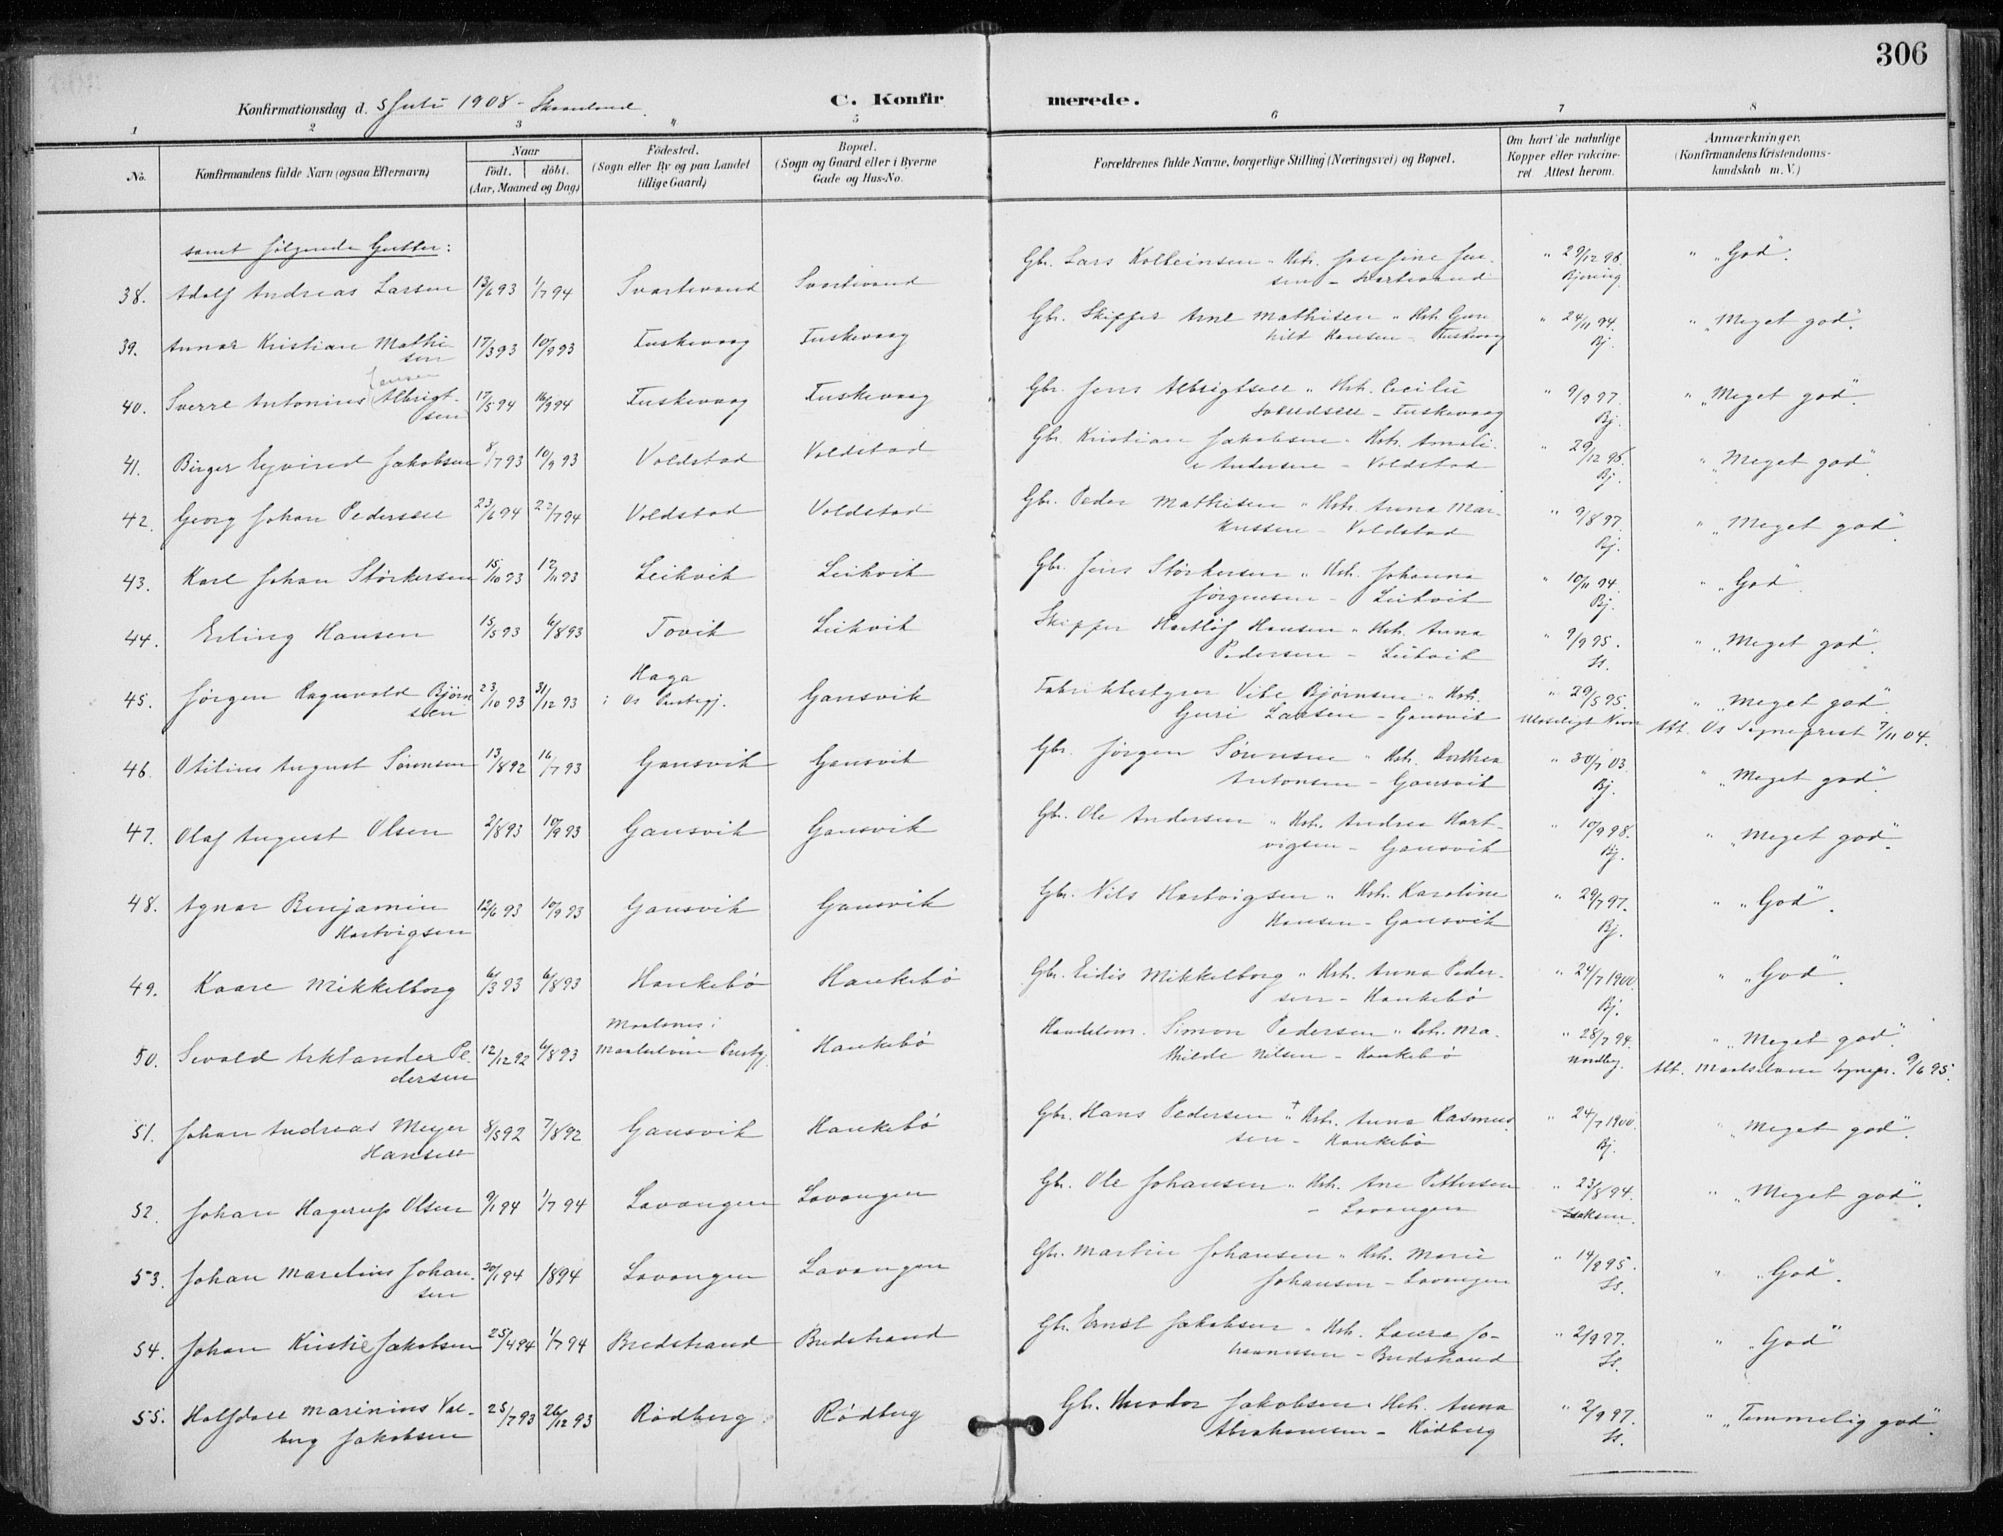 306
Konfirmationsdag d. 5 Juli 1908 - Skaanland.
C. Konfirmerede.
1 2 3 4 5 6 7 8
No.
Konfirmandens fulde Navn (ogsaa Efternavn)
Naar
født. døbt.
(Aar, Maaned og Dag)
Fødested.
(Sogn eller By og paa Landet
tillige Gaard)
Bopæl.
(Sogn og Gaard eller i Byerne
Gade og Hus-No.
Forældrenes fulde Navne, borgerlige Stilling (Næringsvei) og Bopæl.
Om havt de naturlige
Kopper eller vakcine-
ret Attest herom.
Anmærkninger.
(Konfirmandens Kristendoms-
kundskab m. V.)
samt følgende Gutter:
38. Adolf Andreas Larsen 13/6 93 1/7 94 Svartevand Svartevand Gbr. Lars Kolbeinsen " Hst. Josefine Jen-
sen - Svartevand " 29/12 96. Bjering. " "God".
39. Annar Kristian Mathi-
sen 17/3 93 10/9 93 Fuskevaag Fuskevaag Gbr. Skipper Arne Mathisen " Hst. Gun-
hild Hansen - Fuskevaag " 24/11 94. Bj. " "Meget god".
40. Sverre Antonius Jensen (Albrigt-
sen) 17/5 94 16/9 94 Fuskevaag Fuskevaag Gbr. Jens Albrigtsen " Hst. Cecilie
- Fuskevaag " 9/9 97. Bj. " "Meget god".
41. Birger Eyvind Jakobsen 8/7 93 10/9 93 Voldstad Voldstad Gbr. Kristian Jakobsen " Hst. Amali-
e Andersen - Voldstad " 29/12 96. Bj. " "Meget god".
42. Georg Johan Pedersen 23/6 94 22/7 94 Voldstad Voldstad Gbr. Peder Mathisen " Hst. Anna Mar-
kussen - Voldstad " 9/8 97. Bj. " "Meget god".
43. Karl Johan Størkersen 15/10 93 12/11 93 Leikvik Leikvik Gbr. Jens Størkersen " Hst. Johanna
Jørgensen - Leikvik " 10/11 94. Bj. " "God".
44. Erling Hansen 15/5 93 6/8 93 Tovik Leikvik Skipper Hartløf Hansen " Hst. Anna
Pedersen - Leikvik " 9/9 95. Is. " "Meget god".
45. Jørgen Ragnvald Bjørn-
sen 23/10 93 31/12 93 Haga
i Os Prestegj. Gansvik Fabrikbestyrer Vibe Bjørnsen " Hst.
Guri Larsen - Gansvik " 29/5 95. Ulæseligt Navn " "Meget god".
Att. Os Sogneprest 7/11 04.
46. Otilius August Sørensen 13/8 92 16/7 93 Gansvik Gansvik Gbr. Jørgen Sørensen " Hst. Dorthea
Antonsen - Gansvik " 30/7 03. Bj. " "Meget god".
47. Olaf August Olsen 2/8 93 10/9 93 Gansvik Gansvik Gbr. Ole Andersen " Hst. Andrea Hart-
vigsen - Gansvik " 10/9 98. Bj. " "Meget god".
48. Agnar Benjamin
Hartvigsen 12/6 93 10/9 93 Gansvik Gansvik Gbr. Nils Hartvigsen " Hst. Karoline
Hansen - Gansvik " 29/7 97. Bj. " "God".
49. Kaare Mikkelborg 6/3 93 6/8 93 Haukebø Haukebø Gbr. Eidis Mikkelborg " Hst. Anna Peder-
sen - Haukebø " 24/7 1900. Bj. " "God".
50. Sevald Arktander Pe-
dersen 12/12 92 6/8 93 Moalsnes i
Maalselven Prestgj. Haukebø Handelsm. Simon Pedersen " Hst. Ma-
thilde Nilsen - Haukebø " 28/7 94. Nordby. " "Meget god".
Att. Maalselvens Sognepr. 9/6 95.
51. Johan Andreas Meyer
Hansen 8/5 92 7/8 92 Gansvik Haukebø Gbr. Hans Pedersen " † Hst. Anna Rasmus-
sen - Haukebø " 24/7 1900. Bj. " "Meget god".
52. Johan Hagerup Olsen 9/1 94 1/7 94 Lavangen Lavangen Gbr. Ole Johansen " Hst. Ane Pettersen
- Lavangen " 23/8 94. Isaksen. " "Meget god".
53. Johan Marelius Johan-
sen 20/1 94 1894 Lavangen Lavangen Gbr. Martin Johansen " Hst. Marie
Johansen - Lavangen " 14/9 95. Is. " "God".
54. Johan Kristie Jakobsen 25/4 94 1/7 94 Bredstrand Bredstrand Gbr. Ernst Jakobsen " Hst. Laura Jo-
hannessen - Bredstrand " 2/9 97. Is. " "God"
55. Halfdan Marinius Val-
berg Jakobsen 25/7 93 26/12 93 Rødberg Rødberg Gbr. Theodor Jakobsen " Hst. Anna
Abrahamsen - Rødberg " 2/9 97. Is. " "Temmelig god".